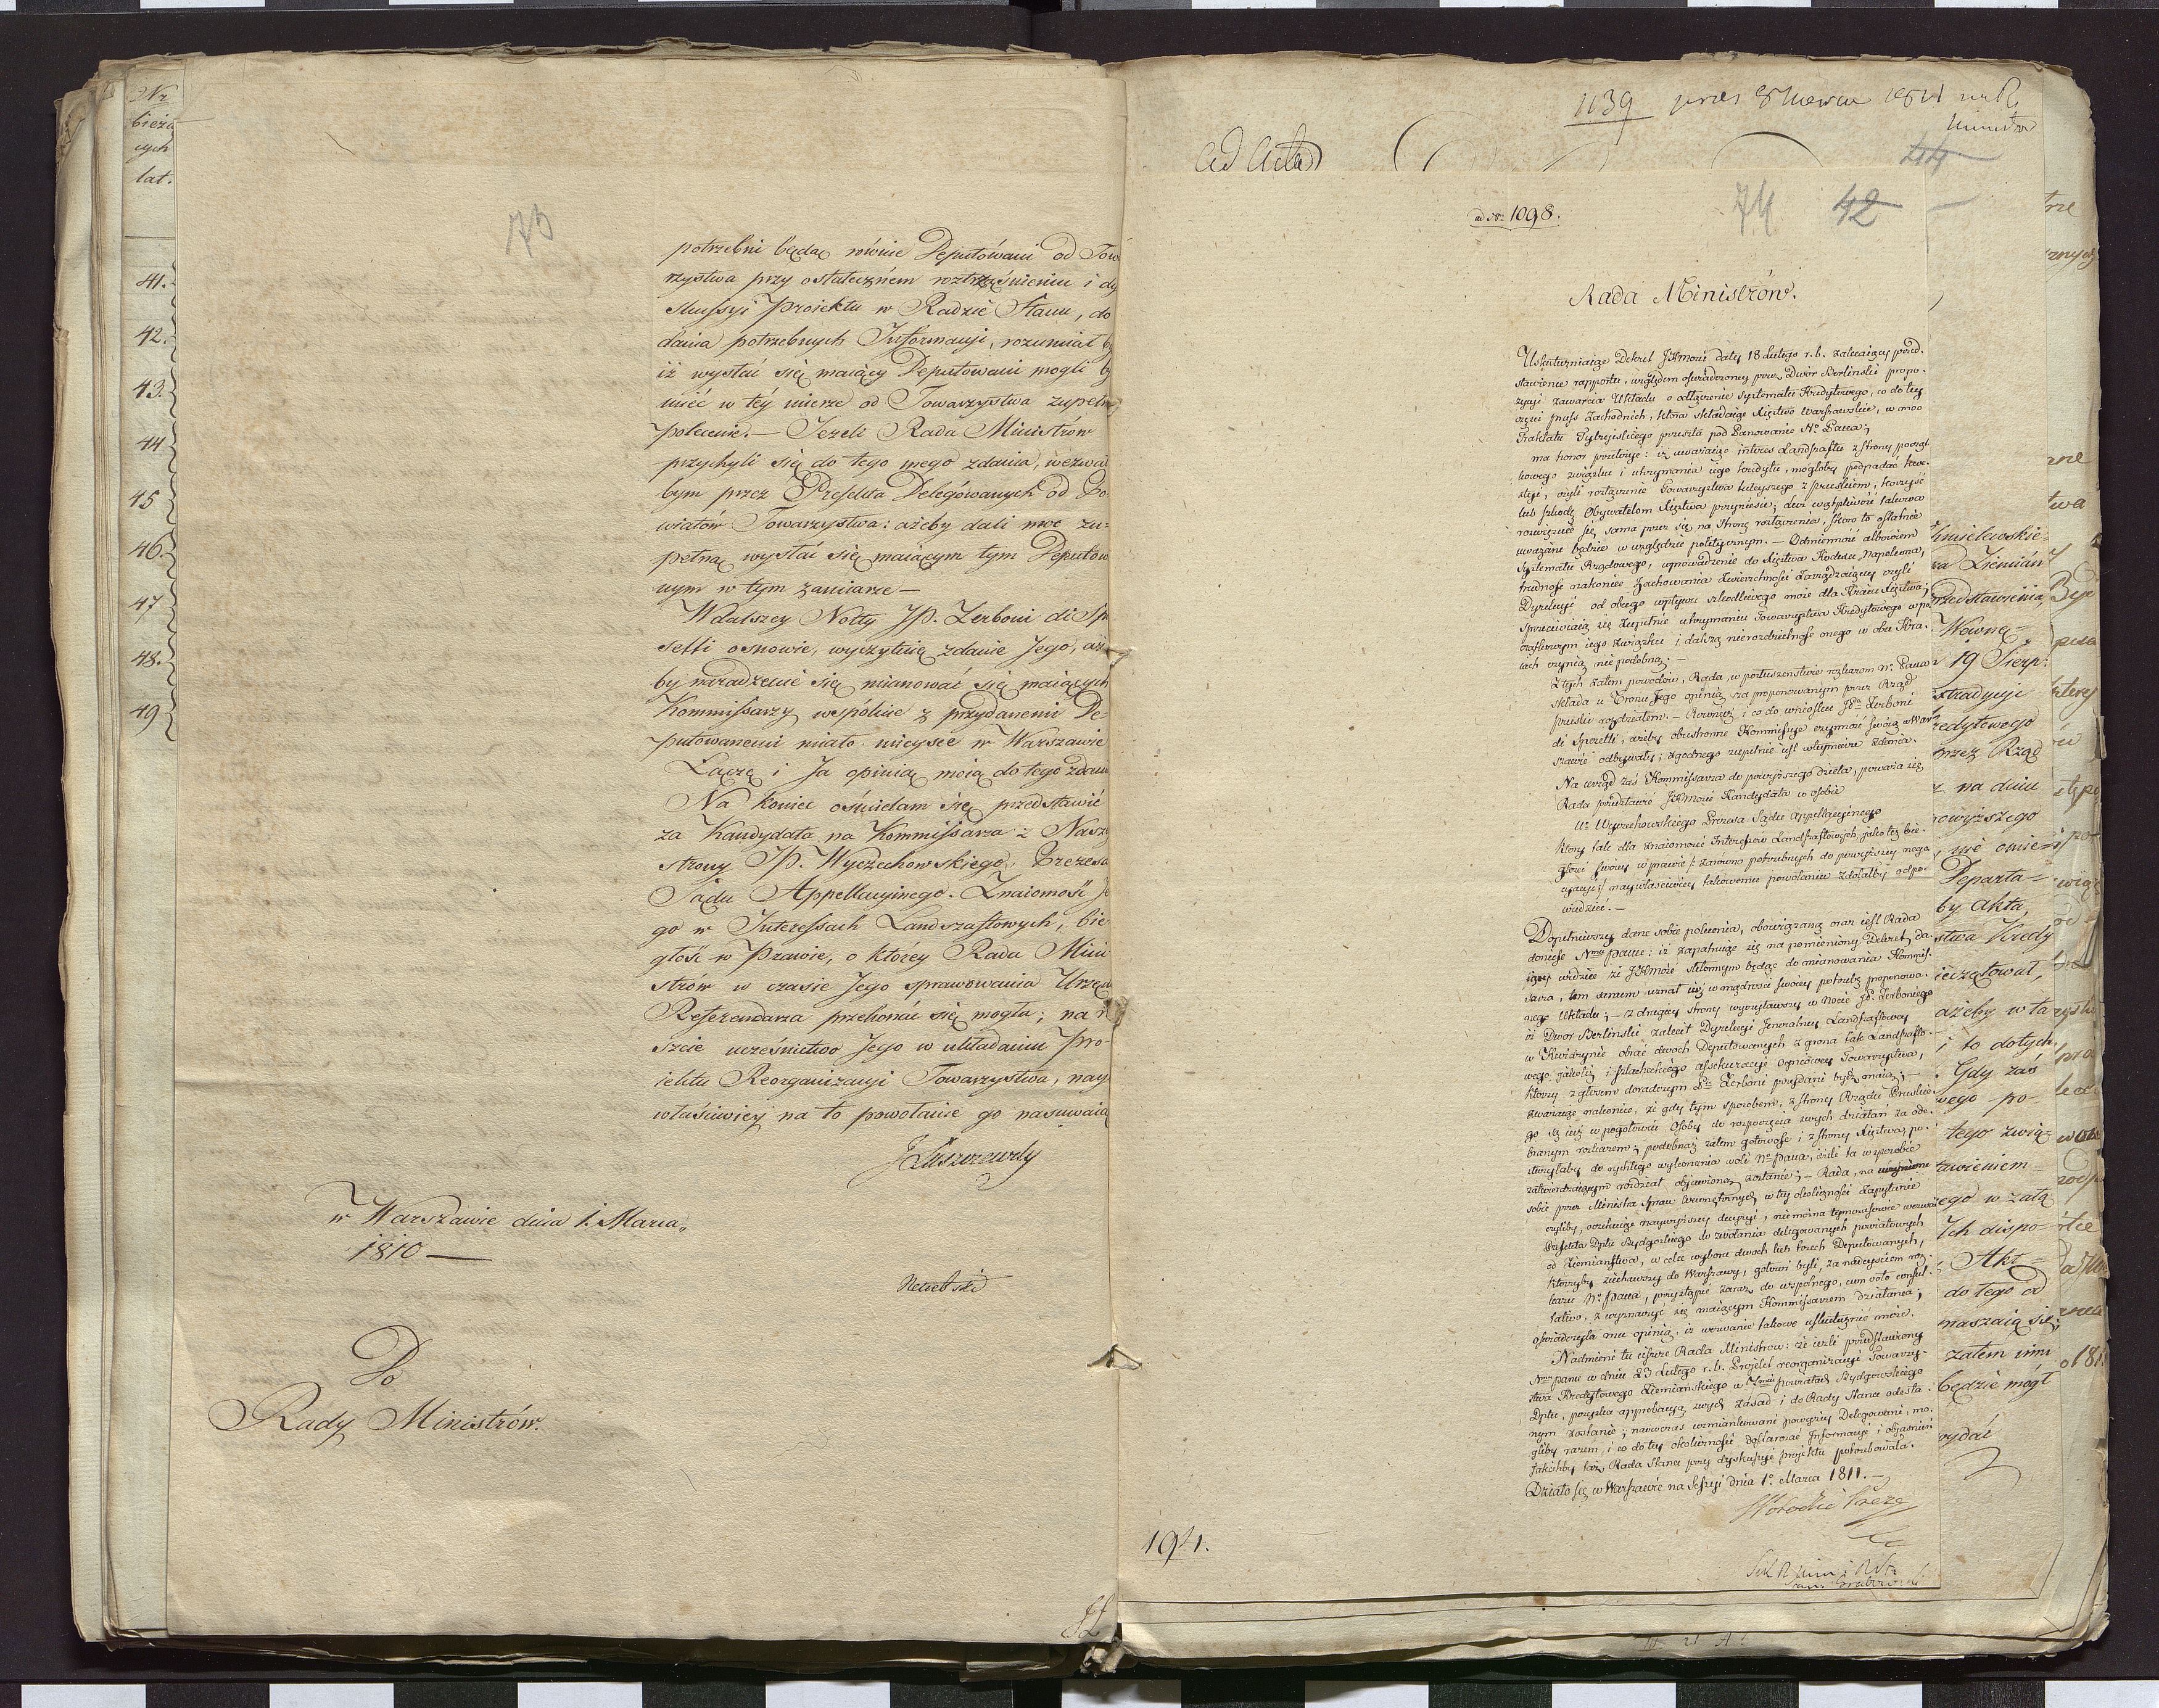 Nr
bieżą
cych
lat.
41.
42.
43.
44
45
46.
47
48.
49
73
potrzebni będąc równie Deputowani od Tow
rzystwa przy ostatecznem roztrząśnieniu i dy
skussyi Proiektu w Radzie Stanu, do
dania potrzebnych Informacyi, rozumiał b
iż wysłać się maiący Deputowani mogli b
mieć w tey mierze od Towarzystwa zupełne
polecenie. — Jeżeli Rada Ministrów
przychyli się do tego mego zdania, wezwał
bym przez Prefekta Delegówanych od Po-
wiatów Towarzystwa: ażeby dali moc zu-
pełną wysłać się maiącym tym Deputow
nym w tym zamiarze —
W dalszey Notty JP. Zerboni di Spo
setti osnowie, wyczytuię zdanie Jego, aże
by naradzenie się mianować się maiących
Kommissarzy wspólnie z przydanemi De-
putowanemi miało mieysce w Warszawie
Łączę i Ja opinią moią do tego zdan
Na koniec ośmielam się przedstawić
za Kandydata na Kommissarza z Naszy
strony JP. Wyczechowskiego, Prezesa
Sądu Appellacyinego. Znaiomość Je
go w Interessach Landszaftowych, bie
głość w Prawie, o którey Rada Mini
strów w czasie Jego sprawowania Urzęd
Referendarza przekonać się mogła; na r
szcie uczęśnictwo Jego w układaniu Pro-
iektu Reorganizacyi Towarzystwa, nay
właściwiey na to powołanie go nasuwaią
JŁuszczewsky
w Warszawie dnia 1. Marca
1810 —
Do
Rady Ministrów.
1139
ad Acta
44
ad Nr 1098.
74 42
Rada Ministrów.
Uskuteczniaiąc Dekret JKMości daty 18 Lutego r.b. zalecaiący przed-
stawienie rapportu, względem oświadczoney przez Dwór Berliński propo-
zycyi zawarcia Układu o odłączenie systematu Kredytowego, co do tey
części Pruss Zachodnich, która składaiąc Xięztwo Warszawskie, w moc
Traktatu Tylżyckiego przeszła pod Panowanie N° Pana;
ma honor przełożyć: iż uważaiąc interes Landszaftu z strony począt-
kowego związku i utrzymania iego kredytu, mogłoby podpadać kwe-
styi, czyli rozłączenie Towarzystwa tuteyszego z pruskiem, korzyść
lub szkodę Obywatelom Xięztwa przyniesie; lecz wątpliwość takowa
rozwiązuie się sama przez się na stronę rozłączenia, skoro to ostatnie
uważane będzie w względzie politycznym. — Odmienność albowiem
Systematu Rządowego, wprowadzenie do Xięztwa Kodexu Napoleona,
trudność nakoniec zachowania Zwierzchności Zarządzaiącey czyli
Dyrekcyi od obcego wpływu szkodliwego może dla Kraiu Xięztwa;
sprzeciwiaią się zupełnie utrzymaniu Towarzystwa Kredytowego w po
czątkowym iego związku i dalszą nierozdzielność onego w obu Kra-
iach czynią niepodobną. —
Z tych zatem powodów, Rada, w posłuszeństwie rozkazom N° Pana
składa u Tronu Jego opinią za proponowanym przez Rząd
pruski rozdziałem. — Również i co do wniosku JPa Zerboni
di Sposetti, ażeby obustronne Kommissye czynność swoią w War-
szawie odbywały; zgodnego zupełnie iest w tey mierze zdania.
Na urząd zaś Kommissarza do powyższego dzieła, poważa się
Rada przedstawić JKMości Kandydata w osobie
Ur Wyczechowskiego Prezesa Sądu Appellacyinego
który tak dla znaiomości Interessów Landszaftowych, iako też bie-
głości swoiey w prawie /: zarówno potrzebnych do powyższey nego-
cyacyi :/ naywłaściwiey takowemu powołaniu zdołałby odpo-
wiedzieć. —
Dopełniwszy dane sobie polecenia, obowiązaną oraz iest Rada
donieść Nmu Panu: iż zapatruiąc się na pomieniony Dekret, da-
iący widzieć że JKMość skłonnym będąc do mianowania Kommis-
sarza, tem samem uznał iuż w mądrości swoiey potrzebę proponowa-
nego Układu; — z drugiey strony wyczytawszy w Nocie JP. Zerboniego
iż Dwór Berliński zalecił Dyrekcyi Jeneralney Landszaftowey
w Kwidzynie obrać dwóch Deputowanych z grona tak Landszafto-
wego, iakoteż i szlacheckiego assekuracyi Ogniowey Towarzystwa,
którzy z głosem doradczym Pu Zerboni przydani bydź maią; —
zważaiąc nakoniec, że gdy tym sposobem, z strony Rządu Pruskie-
go są iuż w pogotowiu Osoby do rozpoczęcia swych działań za ode-
branym rozkazem; podobnaż zatem gotowość i z strony Xięztwa, po-
służyłaby do rychłego wykonania woli N° Pana, ieśli ta w sposobie
zatwierdzaiącym rozdział obiawioną zostanie; — Rada, na uczynione
sobie przez Ministra Spraw Wewnętrznych w tey okoliczności zapytanie
czyliby, oczekuiąc naywyższey decyzyi, nie można tymczasowie wezwać
Prefekta Dptu Bydgoskiego do zwołania delegowanych powiatowych
od Ziemiaństwa, w celu wyboru dwóch lub trzech Deputowanych,
którzyby ziechawszy do Warszawy, gotowi byli, za nadeyściem roz-
kazu N° Pana, przystąpić zaraz do wspólnego, cum voto consul-
tativo, z wyznaczyć się maiącym Kommissarzem działania;
oświadczyła mu opinią, iż wezwanie takowe uskutecznić może.
Nadmieni tu ieszcze Rada Ministrów: że ieżli przedstawiony
Nmu Panu w dniu 23 Lutego r.b. Proiekt reorganizacyi Towarzys-
twa Kredytowego Ziemiańskiego w powiatach Bydgoskiego
Dptu, pozyska approbacyą swych zasad i do Rady Stanu odesła-
nym zostanie; naówczas wzmiankowani powyżey Delegowani, mo-
gliby razem, i co do tey okoliczności dostarczać Informacyi i obiaśnień
iakichby taż Rada Stanu przy dyskussyi proiektu potrzebowała.
Działo się w Warszawie na Sessyi dnia 1° Marca 1811. —
194.
hmielewskie-
wa Ziemiań
Przedstawienia,
Wównę-
19 Sierp:
stradycyi
redytowego
przez Rząd
na dniu
owyższego
nie omie-
Departa-
by Akta,
stwa Kredy
ieczętował,
ażeby w ta
i to dotych
Gdy zaś
wego po-
tego zwią-
tawieniem
ego w zału
Ich dispo-
Akt-
do tego od
naszaią się,
zatem inni
będzie mógł
wydać